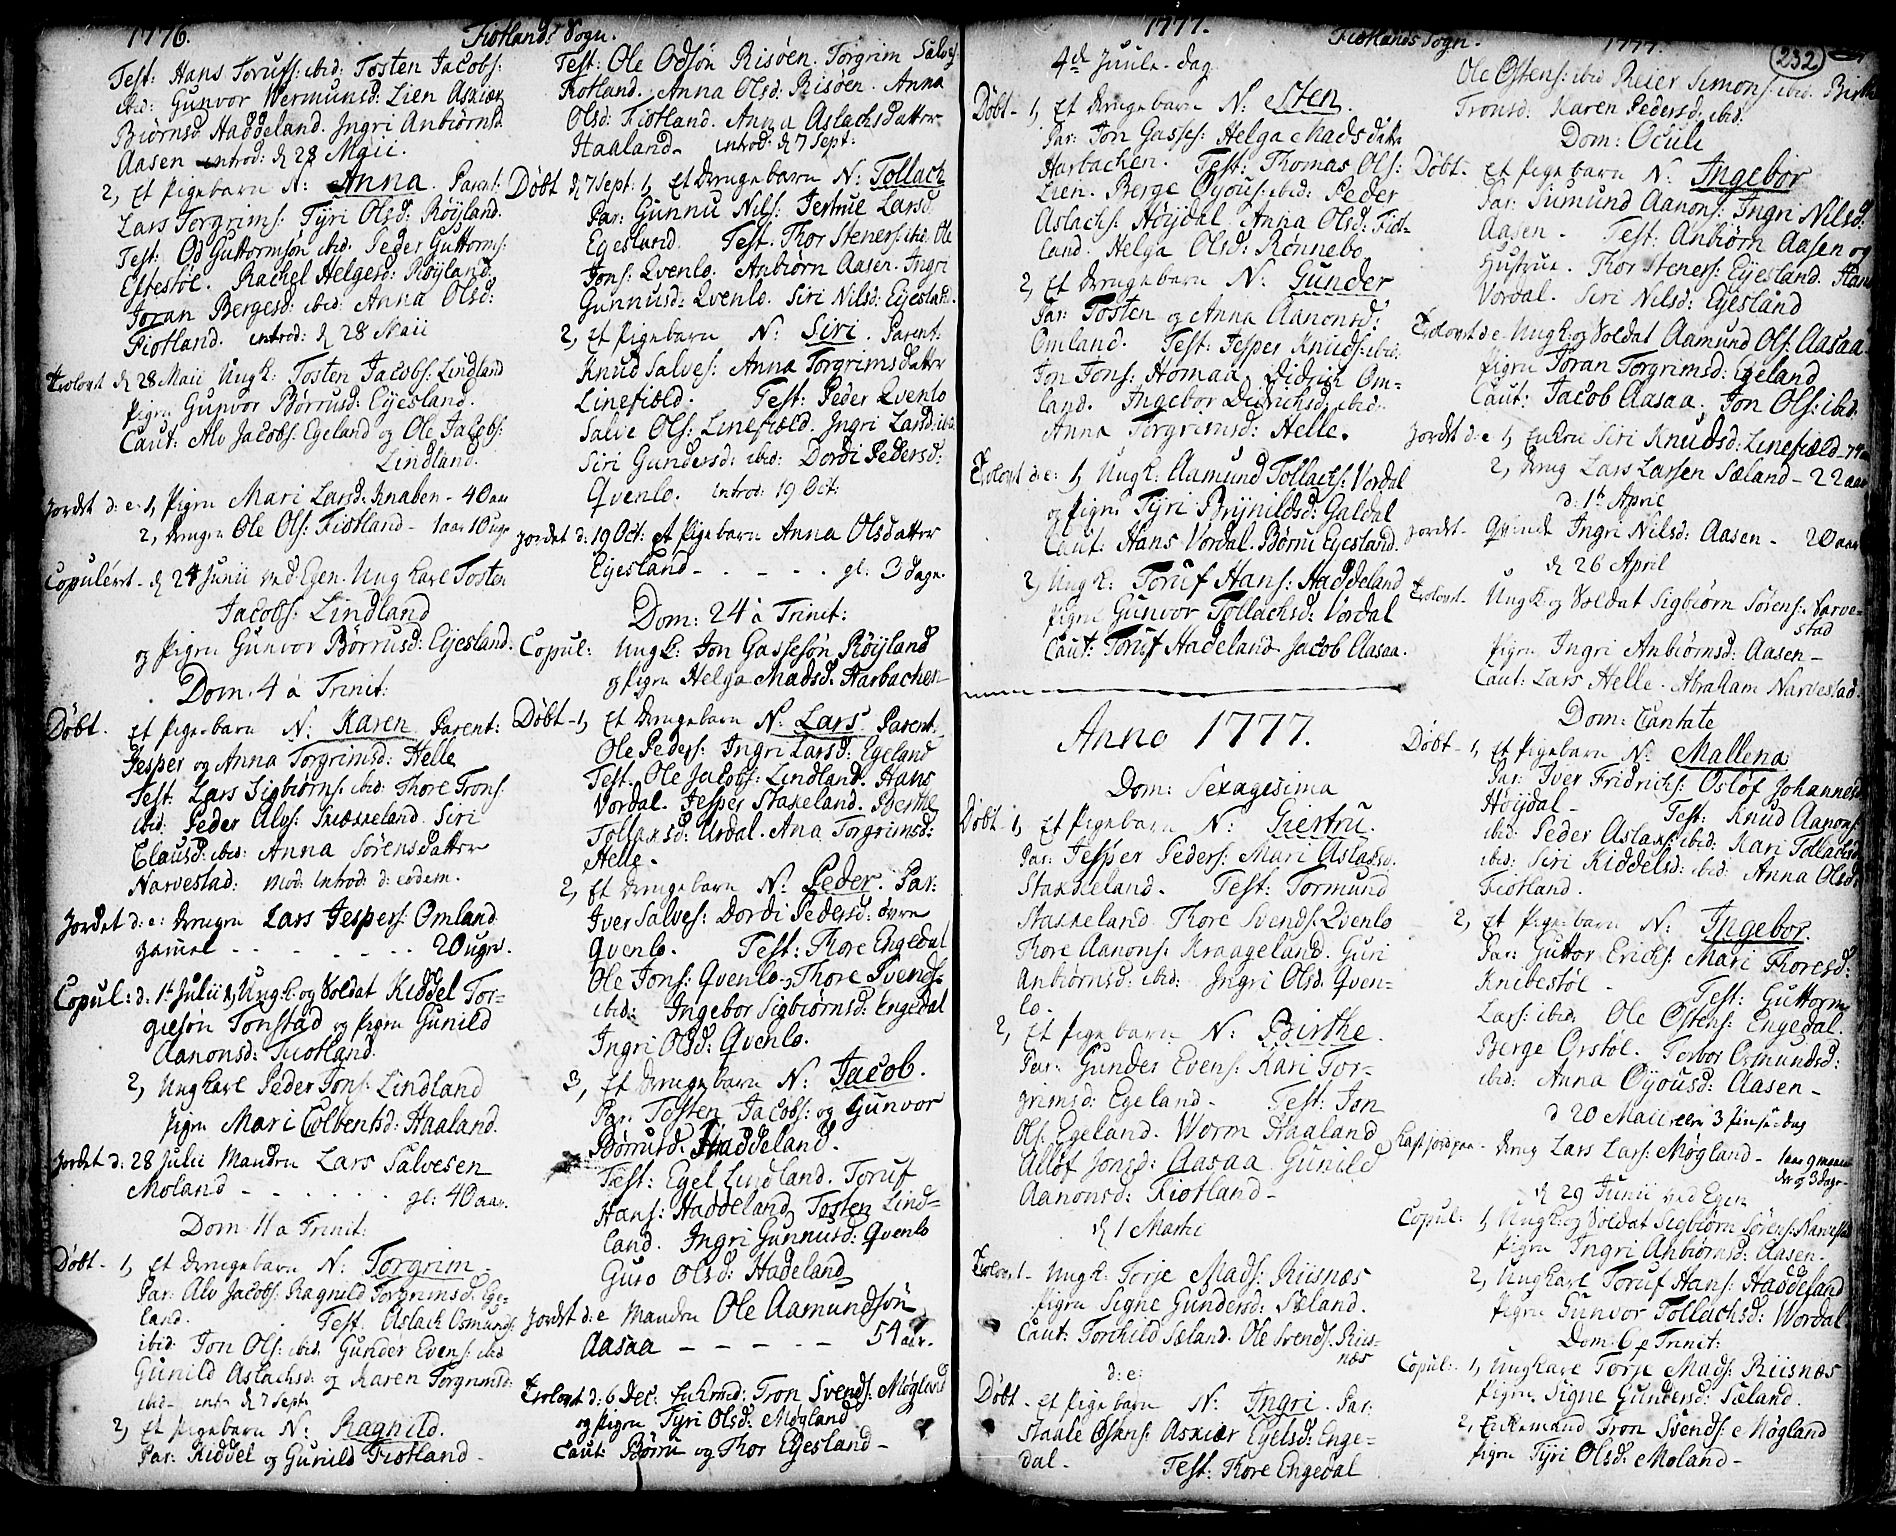 1776. Fiotlands Sogn.
Test: Hans Torufs: ibid: Tosten Jacobs:
ibid: Gunvor Wermunsd: Lien Askier
Biørnsd: Haddeland. Ingri Anbiørnsd:
Aasen introd: d 28 Maii.
2, Et Pigebarn N: Anna. Parent:
Lars Torgrims: Tyri Olsd: Røyland.
Test: Od Guttormsøn ibid. Peder Guttorms:
Eftestøl. Rachel Helgesd: Røyland.
Joran Bergesd: ibid: Anna Olsd:
Fiotland. introd: d 28 Maii
Trolovt d 28 Maii Ungk: Tosten Jacobs: Lindland
Pigen Gunvor Børrusd: Eyesland.
Caut: Alv Jacobs: Egeland og Ole Jacobs:
Lindland.
Jordet d: e: 1, Pigen Mari Larsd: Knaben - 40 aar
2, Drengen Ole Ols: Fiotland - 1 aar 10 uger
Copulert - d 24 Junii ved Egen. Ung karl Tosten
Jacobs: Lindland
og Pigen Gunvor Børrusd: Eyesland.
Dom. 4 a Trinit:
Døbt. Et Pige-barn N: Karen Parent:
Jesper og Anna Torgrimsd: Helle
Test: Lars Sigbiørns: ibid: Thore Trons:
ibid: Peder Alvs: Skieskeland. Siri
Clausd: ibid: Anna Sørensdatter
Narvestad: Mod: introd: d: eodem.
Jordet d: e: Drengen Lars Jespers: Omland
gamel - - - - - 20 uger.
Copul: d. 1t Julii 1, Ungk: og Soldat Kiddel Tor-
giesøn Tonstad og Pigen Gunild
Aanonsd: Fiotland.
2, Ungkarl Peder Jons: Lindland
Pigen Mari Colbentsd: Haaland.
Jordet d: 28 Julii Manden Lars Salvesen
Moland - - - - - gl: 40 aar.
Dom: 11 a Trinit:
Døbt - 1, Et Drengebarn N: Torgrim -
Par: Alv Jacobs: Ragnild Torgrimsd: Ege-
land. Test. Aslach Osmunds:
ibid: Jon Ols: ibid: Gunder Evens: ibid
Gunild Aslachsd: og Karen Torgrimsd:
ibid - intr d 7 Sept
2, Et Pigebarn N: Ragnild.
Par: Kiddel og Gunild Fiotland -
Test: Ole Odsøn Risøen. Torgrim Salves:
Fiotland. Anna Olsd: Risøen. Anna
Olsd: Fiotland. Anna Aslachsdatter
Haaland - introd: d 7 Sept:
Døbt d 7 Sept: 1, Et Drengebarn N: Tollach
Par: Gunnu Nils: Jertrue Larsd:
Egesland. Test: Thor Steners: ibid: Ole
Jons: Qvenlo. Anbiørn Aasen. Ingri
Gunnusd: Qvenlo. Siri Nilsd: Eyesland.
2, Et Pigebarn N: Siri. Parent:
Knud Salves: Anna Torgrimsdatter
Linefield. Test: Peder Qvenlo
Salve Ols: Linefield. Ingri Larsd: ibid:
Siri Gundersd: ibid: Dordi Pedersd:
Qvenlo. introd: 19 Oct:
Jordet d: 19 Oct: et Pigebarn Anna Olsdatter
Eyesland - - - - - gl: 3 dage.
Dom: 24 a Trinit:
Copul: Ungk: Jon Gassesøn Røyland
og Pigen Helga Madsd: Harbachen
Døbt - 1, Et Drengebarn N: Lars Parent.
Ole Peders: Ingri Larsd: Egeland
Test. Ole Jacobs: Lindland. Hans
Vordal. Jesper Stakeland. Berthe
Tollaksd: Urdal. Ana Torgrimsd:
Helle.
2, Et Drengebarn N: Peder. Par:
Iver Salves: Dordi Pedersd: øvre
Qvenlo. Test: Thore Engedal
Ole Jons: Qvenlo - Thore Svends:
ibid: Ingebor Sigbiørnsd: Engedal
Ingri Olsd: Qvenlo.
3, Et Drengebarn N: Jacob.
Par: Tosten Jacobs: og Gunvor
Børrusd: Haddeland.
Test: Egel Lindland. Toruf
Hans: Haddeland. Tosten Lind-
land. Ingri Gunnusd: Qvenlo
Guro Olsd: Hadeland
Jordet d: e Manden Ole Aamundsøn
Aasaa - - - - - 54 aar.
Trolovt d: 6 Dec: Enkemd: Tron Svends: Møgland
og Pigen Tyri Olsd: Møgland
Caut: Børru og Thor Eyesland -
1777. Fiotlands Sogn. 1777. 232
4de Juule-dag.
Døbt - 1, Et Drengebarn N: Esten.
Par: Jon Gasses: Helga Madsdatter
Harbachen. Test: Thomas Ols:
Lien. Berge Øyous: ibid: Peder
Aslachs: Høydal Anna Olsd: Fiot-
land. Helga Olsd: Rønnebo
2, Et Drengebarn N: Gunder
Par: Tosten og Anna Aanonsd:
Omland. Test: Jesper Knuds: ibid:
Jon Jons: Homaa. Didrich Om-
land. Ingebor Didrichsd: ibid.
Anna Torgrimsd: Helle.
Trolovt d: e: 1, Ungk: Aamund Tollachs: Vordal
og Pigen Tyri Brynildsd: Galdal
Caut: Hans Vordal. Børru Eyesland.
2, Ungk: Toruf Hans: Haddeland
Pigen Gunvor Tollachsd: Vordal
Caut: Toruf Hadeland Jacob Aasaa.
Anno 1777.
Dom: Sexagesima
Døbt - 1, Et Pigebarn N: Giertru.
Par: Jesper Peders: Mari Aslaksd:
Stakkeland. Test: Tormund
Stakkeland Thore Svends: Qvenlo
Thore Aanons: Kraageland. Guri
Anbiørnsd: ibid: Ingri Olsd. Qven-
lo.
2, Et Pigebarn N: Birthe.
Par: Gunder Evens: Kari Tor-
grimsd: Egeland - Test: Jon
Ols: Egeland. Worm Haaland
Alløf Jonsd: Aasaa Gunild
Aanonsd: Fiotland -
d 1 Martii
Trolovt - Ungk. Torje Mads: Riisnæs
Pigen Signe Gundersd: Sæland.
Caut: Torchild Sæland. Ole Svends. Riis-
næs
d: e:
Døbt - Et Pigebarn N: Ingri. Par:
Staale Osans: Askier Egelsd: Enge-
dal - Test: Thore Engedal
Ole Østens: ibid Reier Simons: ibid. Birthe
Tronsd: Karen Pedersd: ibid:
Dom: Oculi
Døbt - Et Pigebarn N: Ingebor
Par: Sumund Aanons: Ingri Nilsd:
Aasen - Test: Anbiørn Aasen og
Hustrue. Thor Steners: Eyesland. Hans
Vordal. Siri Nilsd: Eyesland
Trolovt d: e. Ungk: og Soldat Aamund Ols: Aasaa
Pigen Joran Torgrimsd: Egeland
Caut: Jacob Aasaa. Jon Ols: ibid.
Jordt d: e 1, Enken Siri Knudsd: Linefield - 74 aar
2, Dreng Lars Larsen Sæland - 22 aar
d: 1t April
Jordt - Qvinde Ingri Nilsd: Aasen - 20 aar
d 26 April
Trolovt - Ungk: og Soldat Sigbiørn Sørens: Narve-
stad
Pigen Ingri Anbiørnsd: Aasen -
Caut: Lars Helle. Abraham Narvestad.
Dom: Cantate
Døbt - 1, Et Pigebarn N: Mallena
Par: Iver Fridrichs: Osløf Johannesd:
Høydal - Test: Knud Aanons:
ibid: Peder Aslaks: ibid: Kari Tollachsd:
ibid: Siri Kiddelsd: ibid: Anna Olsd:
Fiotland.
2, Et Pigebarn N: Ingebor.
Par: Guttor Erichs: Mari Thoresd:
Knibestøl - Test: Guttorm
Lars: ibid: Ole Østens: Engedal.
Berge Ørstøl. Terbor Osmundsd:
ibid: Anna Øyousd: Aasen -
d 20 Maii eller 3 Pinse-dag
Dreng Lars Lars: Møgland - 1 aar 9 maane-
der og 3 dage -
d 29 Junii ved Egen
Copul: 1, Ungk: og Soldat Sigbiørn Sørens: Narvestad
Pigen Ingri Anbiørnsd: Aasen -
2, Ungkarl Toruf Hans: Haddeland
Pigen Gunvor Tollachsd: Wordal
Dom: 6 p Trinit:
Copul: 1, Ungkarl Torje Mads: Riisnæs
Pigen Signe Gundersd: Sæland.
2, Enkemand Tron Svends: Møgland
Pigen Tyri Olsd: Moland -